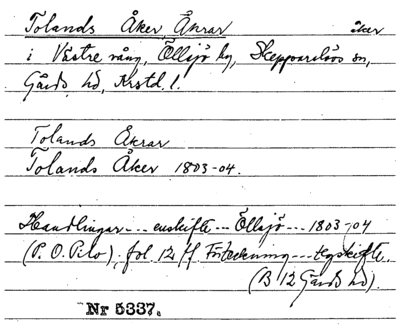 Tolands Åker Åkrar åker
i Västre vång, Öllsjö by, Skepparslövs sn,
Gärds hd, Krstd. l.
Tolands Åkrar
Tolands Åker 1803-04.
Handlingar --- enskifte --- Öllsjö --- 1803-04
(P. O. Pilo), fol. 12 ff Förteckning --- tegskifte.
(B 12 Gärds hd).
Nr 5337.